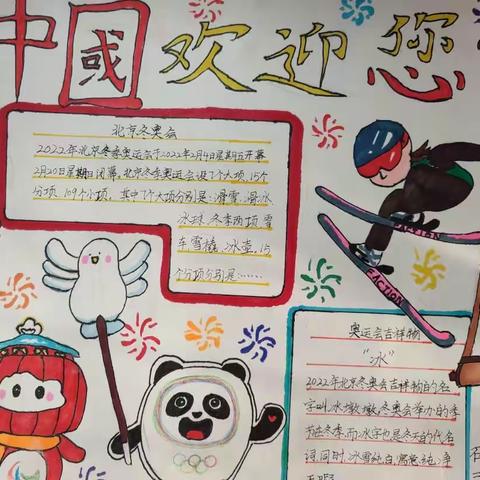 中國欢迎您
北京冬奥会
2022年北京冬季奥运会于2022年2月4日星期五开幕
2月20日星期日闭幕,北京冬季奥运会设7个大项,15个
分项 109个小项,其中7个大项分别是:滑雪、滑冰
冰球、冬季两项、雪
车雪橇、冰壶,15
个分项分别是……
FACTION
FACTION
奥运会吉祥物
"冰"
2022年北京冬奥会吉祥物的名
字叫冰墩墩,冬奥会举办的季
节在冬季,而冰字也是冬天的代名
词同时,冰雪纯白,寓意纯净